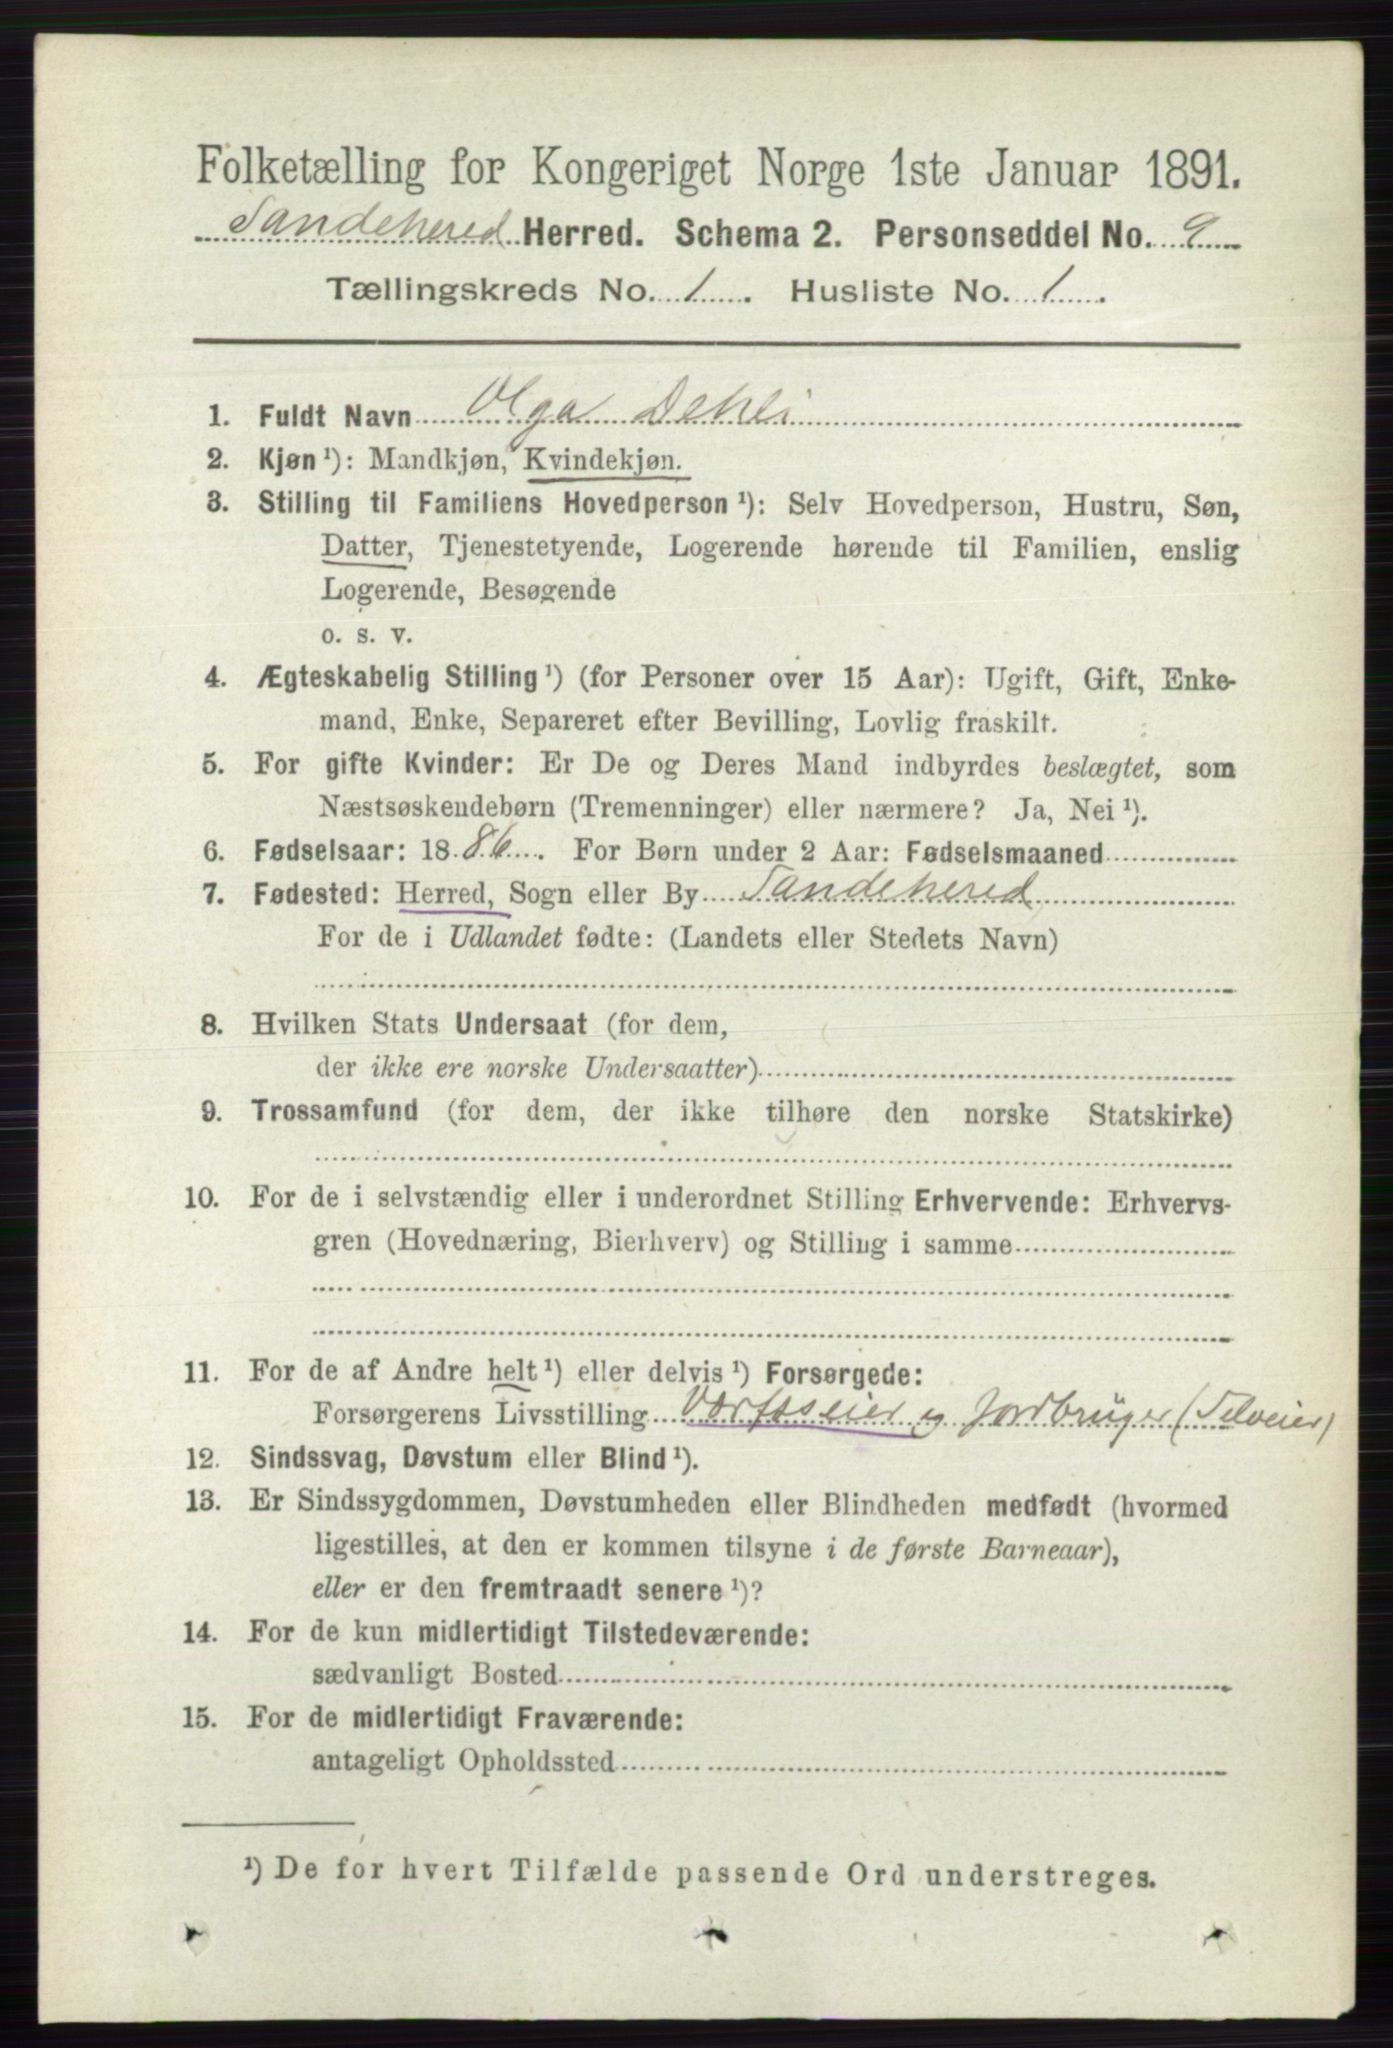 Folketælling for Kongeriget Norge 1ste Januar 1891.
Sandehered Herred. Schema 2. Personseddel No. 9
Tællingskreds No. 1. Husliste No. 1.
1. Fuldt Navn Olga Dehli
2. Kjøn ¹): Mandkjøn, Kvindekjøn.
3. Stilling til Familiens Hovedperson ¹): Selv Hovedperson, Hustru, Søn,
Datter, Tjenestetyende, Logerende hørende til Familien, enslig
Logerende, Besøgende
o. s. v.
4. Ægteskabelig Stilling ¹) (for Personer over 15 Aar): Ugift, Gift, Enke-
mand, Enke, Separeret efter Bevilling, Lovlig fraskilt.
5. For gifte Kvinder: Er De og Deres Mand indbyrdes beslægtet, som
Næstsøskendebørn (Tremenninger) eller nærmere? Ja, Nei ¹).
6. Fødselsaar: 1886. For Børn under 2 Aar: Fødselsmaaned
7. Fødested: Herred, Sogn eller By Sandehered
For de i Udlandet fødte: (Landets eller Stedets Navn)
8. Hvilken Stats Undersaat (for dem,
der ikke ere norske Undersaatter)
9. Trossamfund (for dem, der ikke tilhøre den norske Statskirke)
10. For de i selvstændig eller i underordnet Stilling Erhvervende: Erhvervs-
gren (Hovednæring, Bierhverv) og Stilling i samme
11. For de af Andre helt ¹) eller delvis ¹) Forsørgede:
Forsørgerens Livsstilling Værftseier og Jordbruger (Selveier)
12. Sindssvag, Døvstum eller Blind ¹).
13. Er Sindssygdommen, Døvstumheden eller Blindheden medfødt (hvormed
ligestilles, at den er kommen tilsyne i de første Barneaar),
eller er den fremtraadt senere ¹)?
14. For de kun midlertidigt Tilstedeværende:
sædvanligt Bosted
15. For de midlertidigt Fraværende:
antageligt Opholdssted
¹) De for hvert Tilfælde passende Ord understreges.